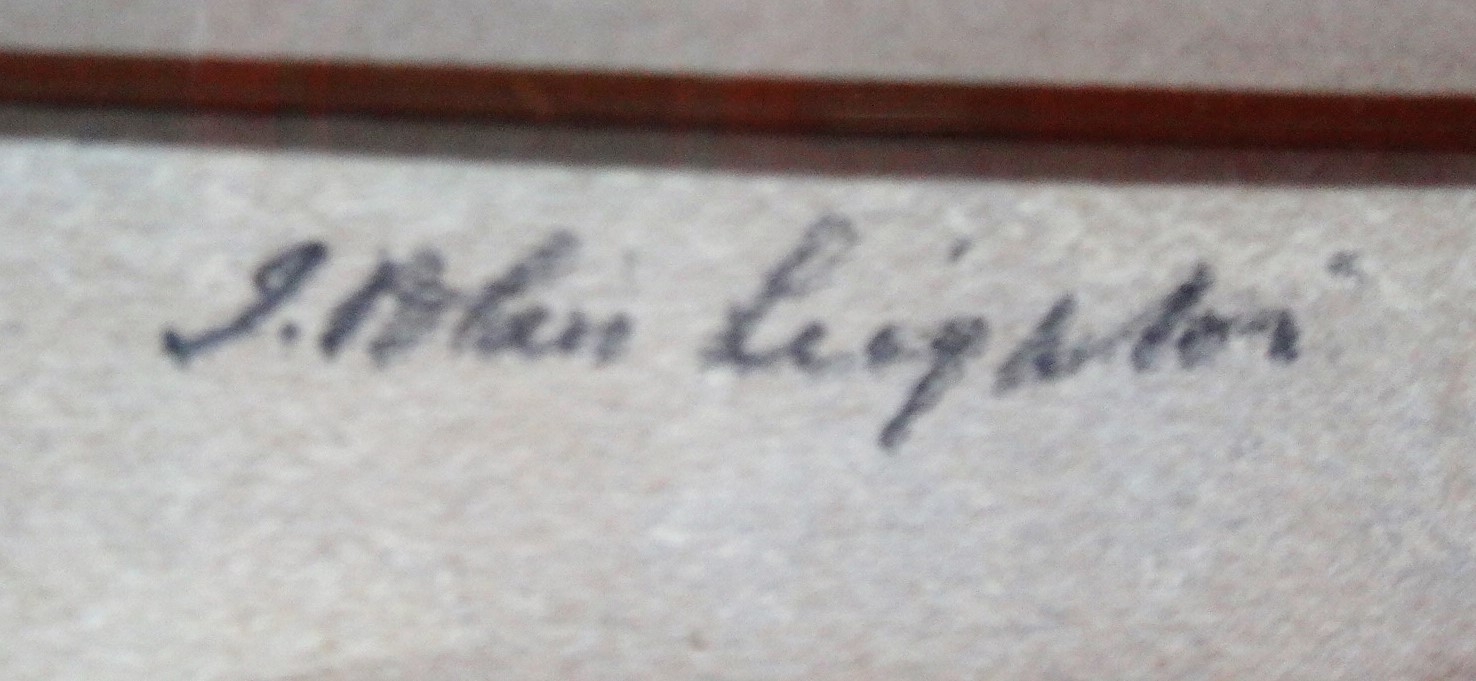 J. Blair Leighton